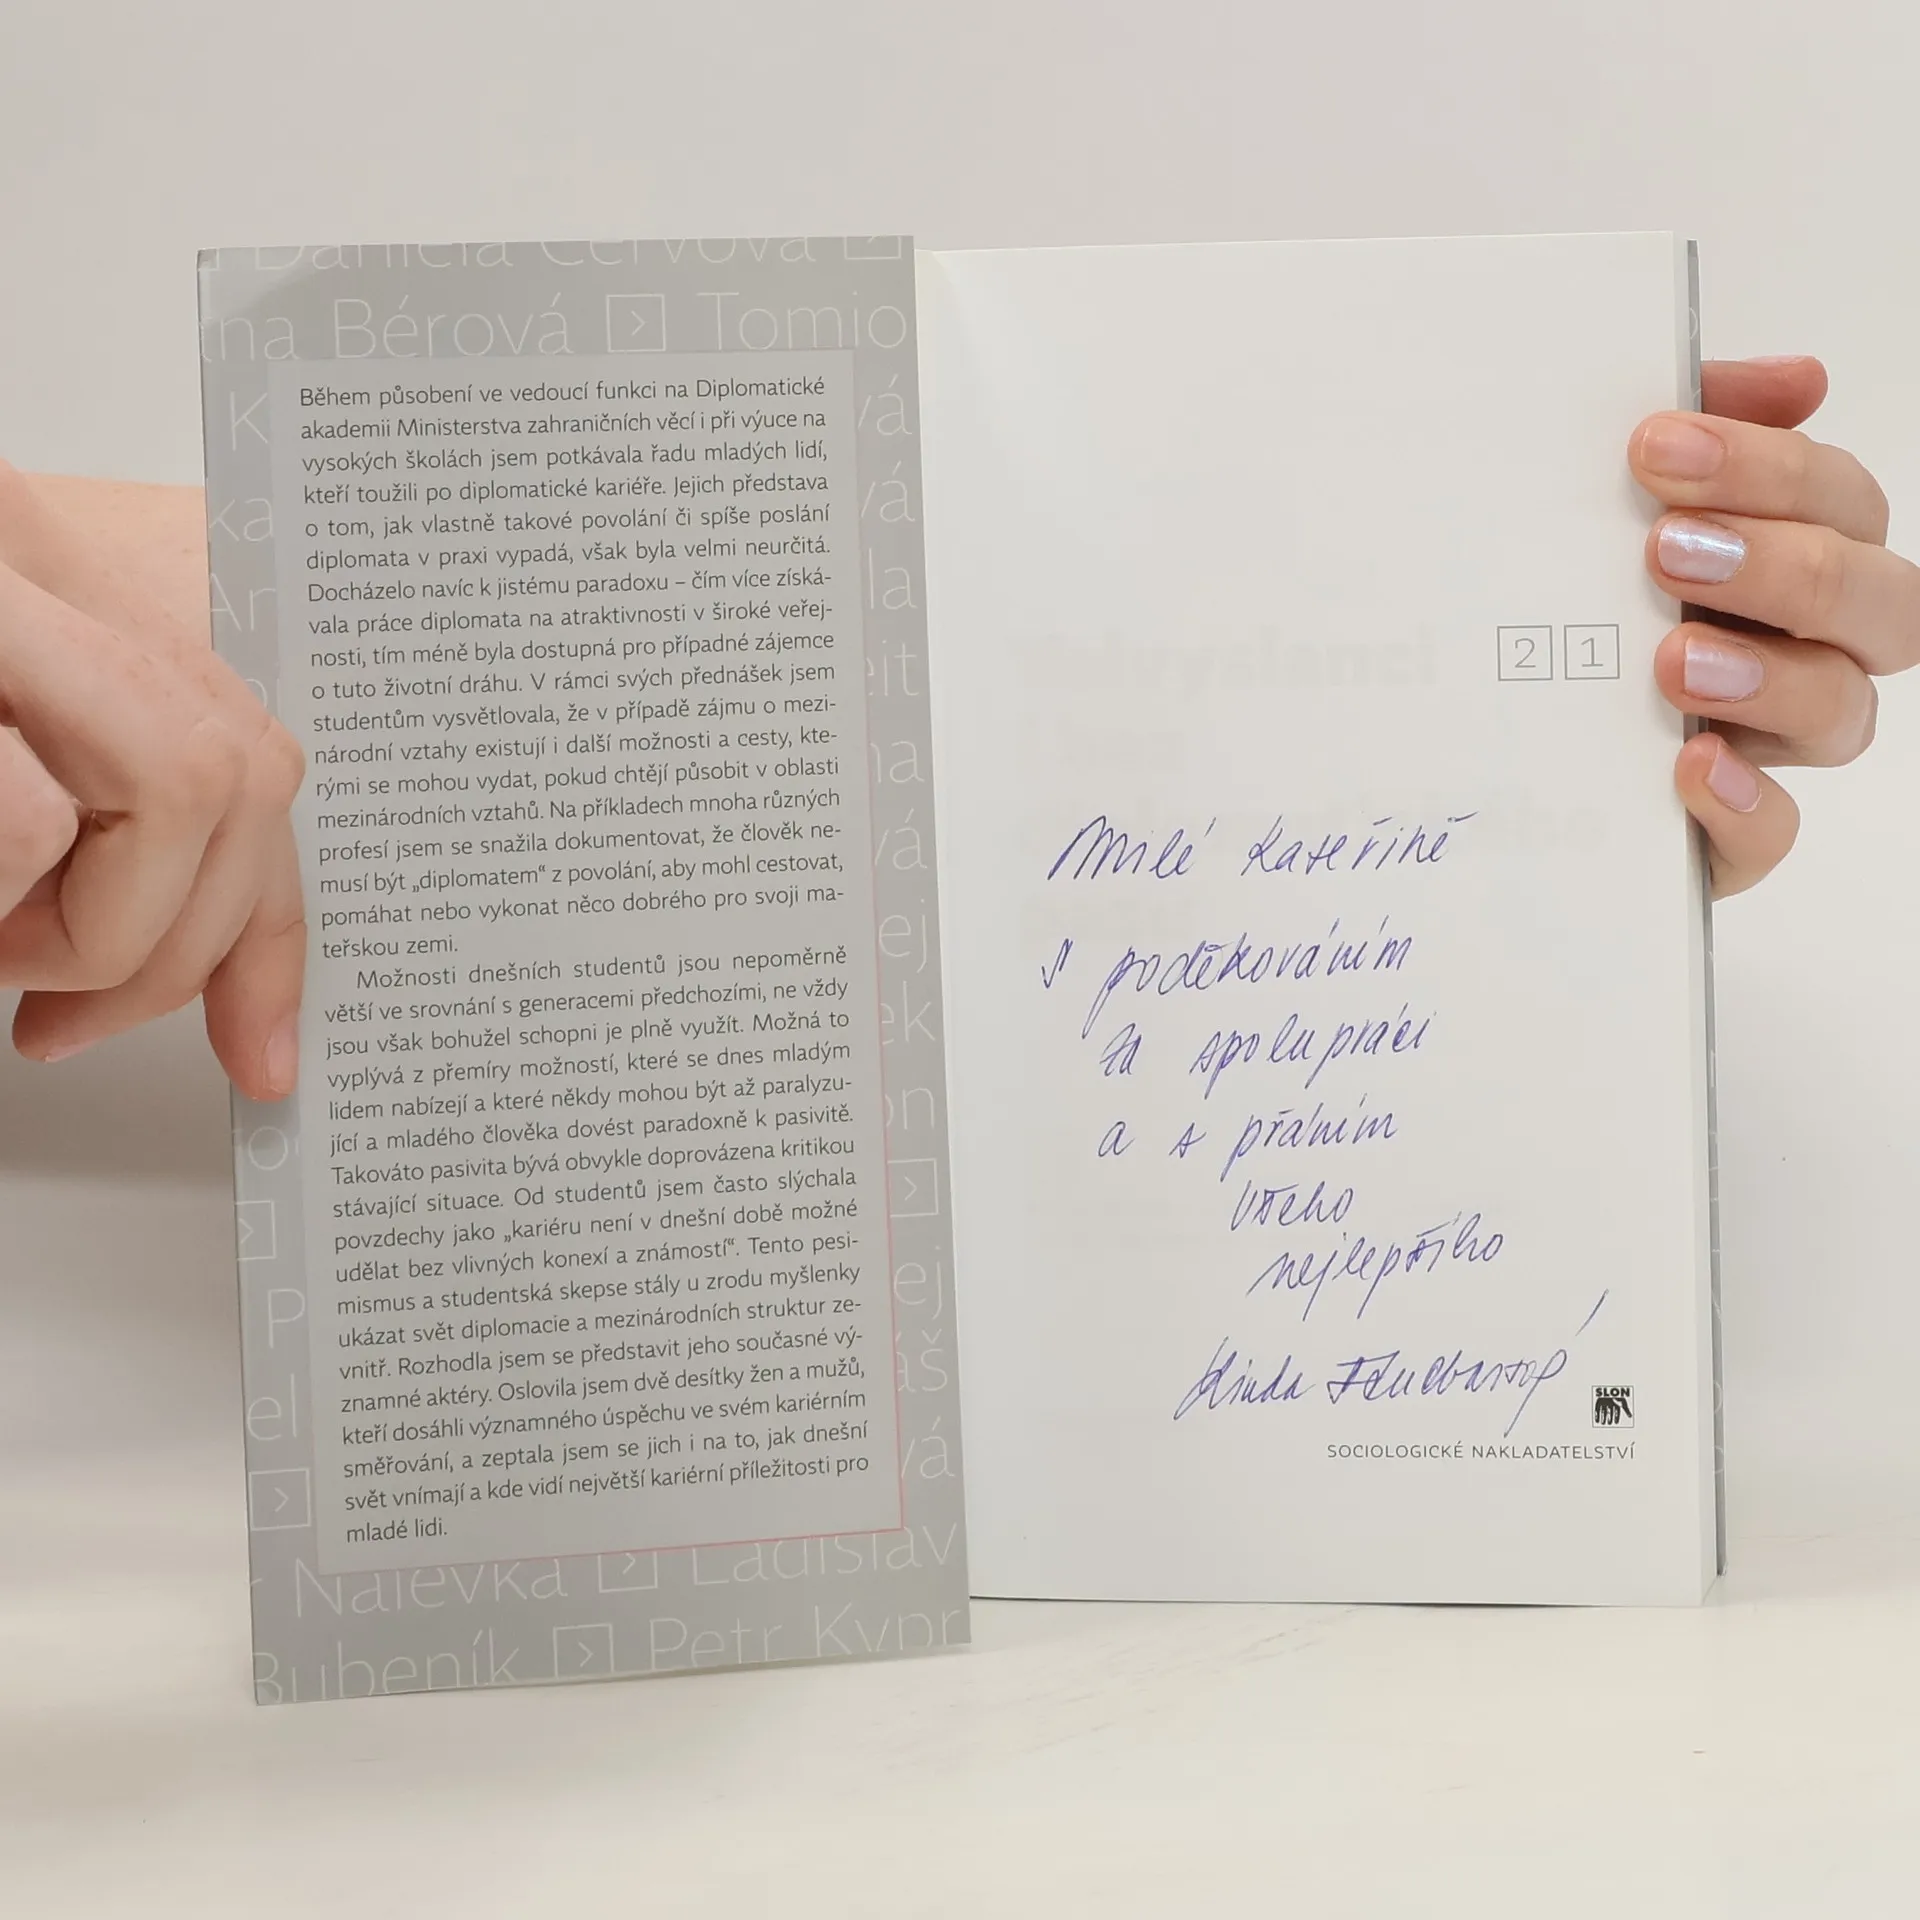 Daniela Červová
na Bérová > Tomio
Během působení ve vedoucí funkci na Diplomatické
akademii Ministerstva zahraničních věcí i při výuce na
vysokých školách jsem potkávala řadu mladých lidí,
kteří toužili po diplomatické kariéře. Jejich představa
o tom, jak vlastně takové povolání či spíše poslání
diplomata v praxi vypadá, však byla velmi neurčitá.
Docházelo navíc k jistému paradoxu – čím více získá-
vala práce diplomata na atraktivnosti v široké veřej-
nosti, tím méně byla dostupná pro případné zájemce
o tuto životní dráhu. V rámci svých přednášek jsem
studentům vysvětlovala, že v případě zájmu o mezi-
národní vztahy existují i další možnosti a cesty, kte-
rými se mohou vydat, pokud chtějí působit v oblasti
mezinárodních vztahů. Na příkladech mnoha různých
profesí jsem se snažila dokumentovat, že člověk ne-
musí být „diplomatem“ z povolání, aby mohl cestovat,
pomáhat nebo vykonat něco dobrého pro svoji ma-
teřskou zemi.
Možnosti dnešních studentů jsou nepoměrně
větší ve srovnání s generacemi předchozími, ne vždy
jsou však bohužel schopni je plně využít. Možná to
vyplývá z přemíry možností, které se dnes mladým
lidem nabízejí a které někdy mohou být až paralyzu-
jící a mladého člověka dovést paradoxně k pasivitě.
Takováto pasivita bývá obvykle doprovázena kritikou
stávající situace. Od studentů jsem často slýchala
povzdechy jako „kariéru není v dnešní době možné
udělat bez vlivných konexí a známostí“. Tento pesi-
mismus a studentská skepse stály u zrodu myšlenky
ukázat svět diplomacie a mezinárodních struktur ze-
vnitř. Rozhodla jsem se představit jeho současné vý-
znamné aktéry. Oslovila jsem dvě desítky žen a mužů,
kteří dosáhli významného úspěchu ve svém kariérním
směřování, a zeptala jsem se jich i na to, jak dnešní
svět vnímají a kde vidí největší kariérní příležitosti pro
mladé lidi.
Nálevka > Ladislav
Bubeník > Petr Kypr
2 1
Milé Kateřině
s poděkováním
za spolupráci
a s přáním
všeho
nejlepšího
SLON
SOCIOLOGICKÉ NAKLADATELSTVÍ